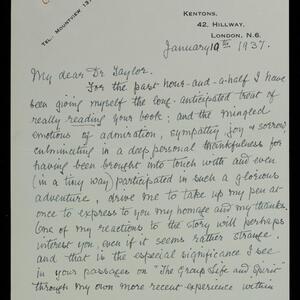 TEL. MOUNTVIEW 13
KENTONS,
42, HILLWAY,
LONDON, N.6.
January 19th 1937.
My dear Dr Taylor.
For the past hour-and-a-half I have
been giving myself the long-anticipated treat of
really reading your book; and the mingled
emotions of admiration, sympathy, joy & sorrow,
culminating in a deep personal thankfulness for
having been brought into touch with and even
(in a tiny way) participated in such a glorious
adventure, drive me to take up my pen at
once to express to you my homage and my thanks.
One of my reactions to the story will perhaps
interest you, even if it seems rather strange,
and that is the especial significance I see
in your passages on "The Group Life and Spirit"
through my own more recent experience within